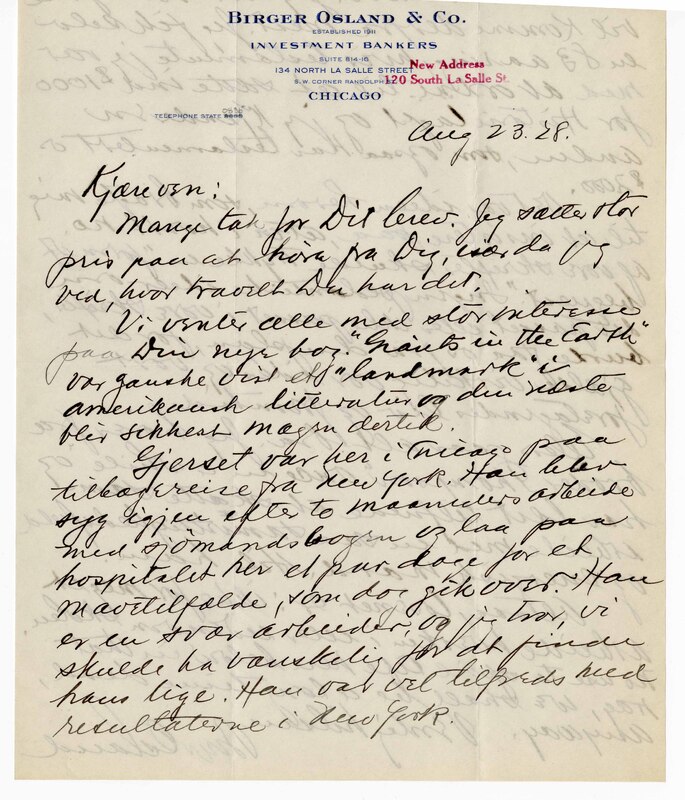 BIRGER OSLAND & CO.
ESTABLISHED 1911
INVESTMENT BANKERS
SUITE 814-16
134 NORTH LA SALLE STREET
S.W. CORNER RANDOLPH
CHICAGO
New Address
120 South La Salle St.
TELEPHONE STATE
Aug 23. '28.
Kjære ven:
Mange tak for Dit brev. Jeg sætter stor
pris paa at höra fra Dig, især da jeg
ved, hvor travelt Du har det.
Vi venter alle med stor interesse
paa Din nye bog. "Giants in the Earth"
var ganske vist et "landmark" i
amerikansk litteratur og den næste
blir sikkert magen dertil.
Gjerset var her i Chicago paa
tilbagereise fra New York. Han blev
syg igjen efter to maaneders arbeide
med sjömandsbogen og laa paa
hospitalet her et par dage for et
mavetilfælde, som dog gik over. Han
er en svær arbeider, og jeg tror, vi
skulde ha vanskelig for at finde
hans lige. Han var vel tilfreds med
resultaterne i New York.